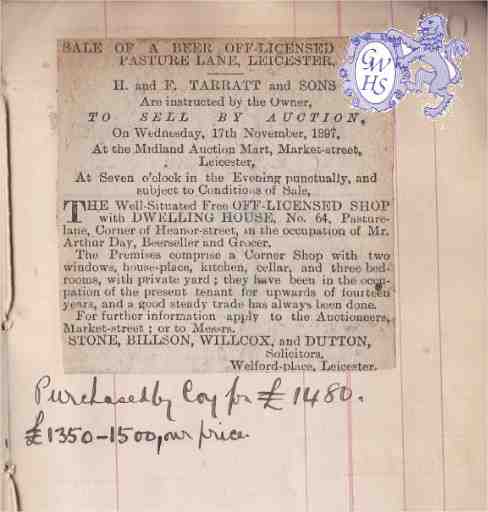 SALE OF A BEER OFF-LICENSED
PASTURE LANE, LEICESTER.
H. and F. TARRATT and SONS
Are instructed by the Owner,
TO SELL BY AUCTION,
On Wednesday, 17th November, 1897,
At the Midland Auction Mart, Market-street,
Leicester,
At Seven o'clock in the Evening punctually, and
subject to Conditions of Sale,
THE Well-Situated Free OFF-LICENSED SHOP
with DWELLING HOUSE, No. 64, Pasture-
lane, Corner of Heanor-street, in the occupation of Mr.
Arthur Day, Beerseller and Grocer.
The Premises comprise a Corner Shop with two
windows, house-place, kitchen, cellar, and three bed-
rooms, with private yard; they have been in the occu-
pation of the present tenant for upwards of fourteen
years, and a good steady trade has always been done.
For further information apply to the Auctioneers,
Market-street; or to Messrs.
STONE, BILLSON, WILLCOX, and DUTTON,
Solicitors,
Welford-place, Leicester.
Purchased by Coy for £1480.
£1350-1500, our price.
GWHS